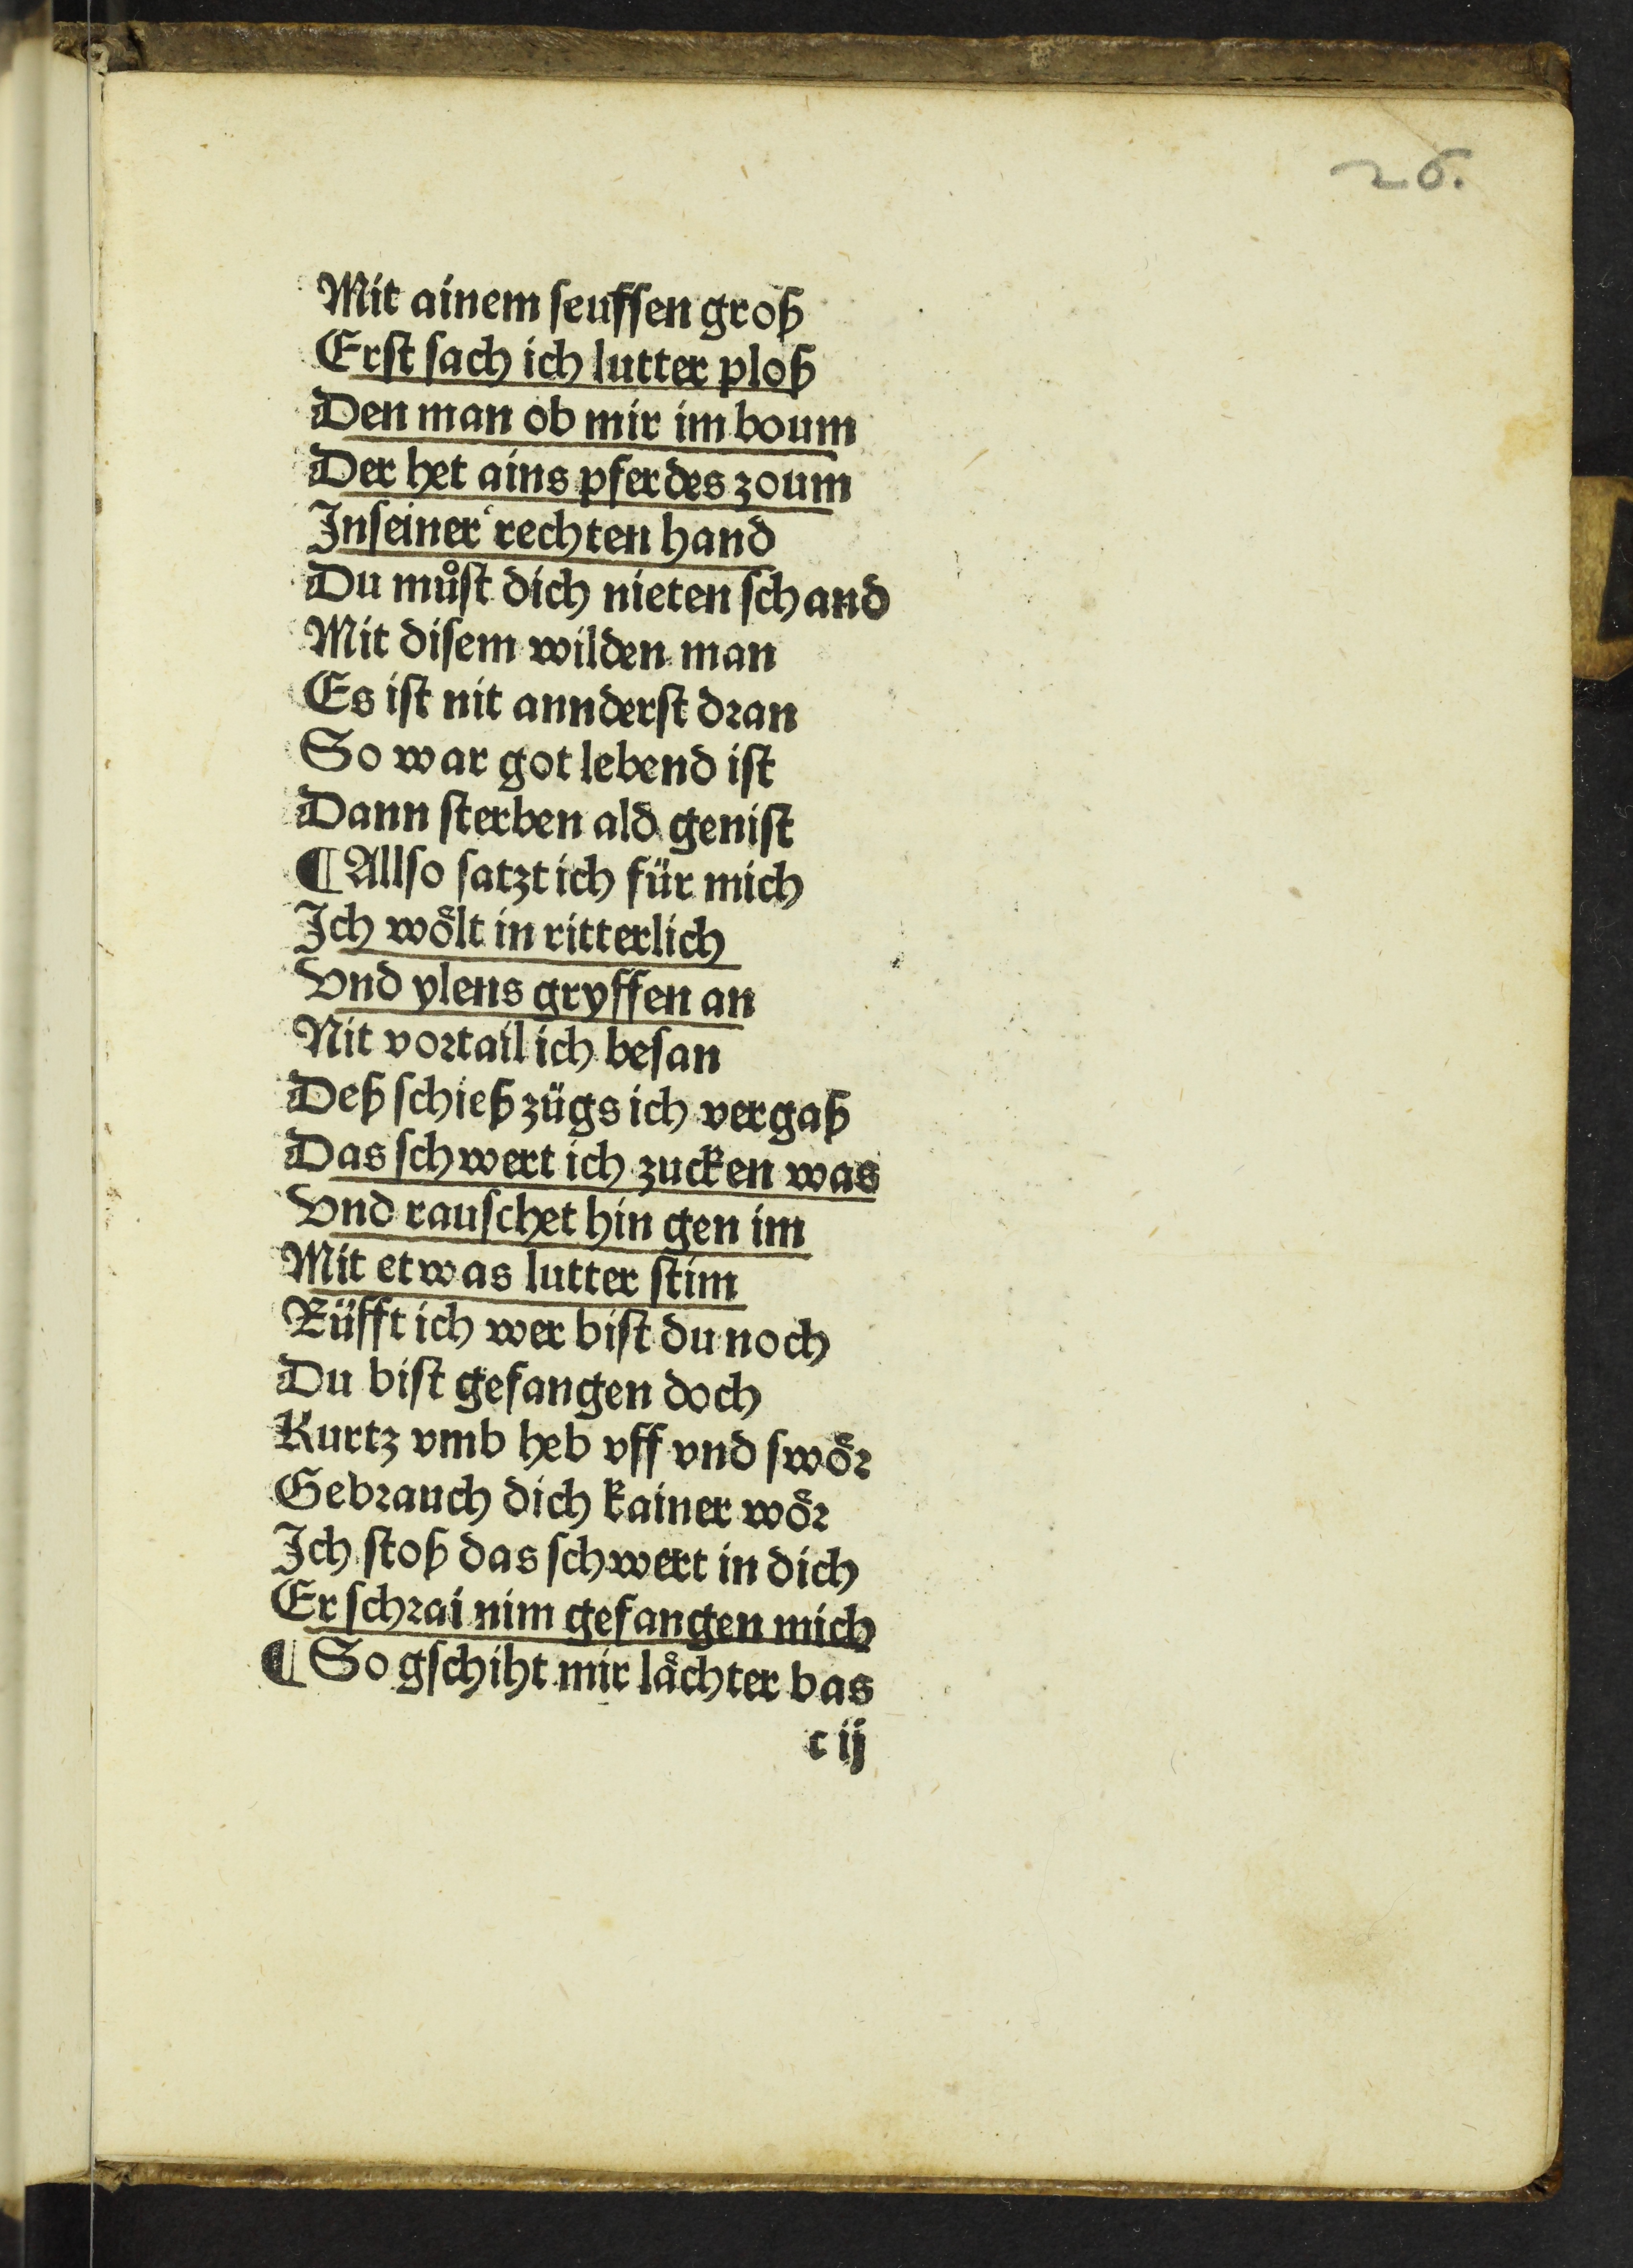 26.
Mit ainem seuffsen groß
Erst sach ich lutter ploß
Den man ob mir im boum
Der het ains pferdes zoum
Inseiner rechten hand
Du můst dich nieten schand
Mit disem wilden man
Es ist nit annderst dran
So war got lebend ist
Dann sterben ald genist
¶ Allso satzt ich für mich
Ich woͤlt in ritterlich
Vnd ylens gryffen an
Nit vortail ich besan
Deß schieß zügs ich vergaß
Das schwert ich zucken was
Vnd rauschet hin gen im
Mit etwas lutter stim
Rüfft ich wer bist du noch
Du bist gefangen doch
Kurtz vmb heb vff vnd swoͤr
Gebrauch dich kainer woͤr
Ich stoß das schwert in dich
Er schrai nim gefangen mich
¶ So gschiht mir laͤchter bas
c ij